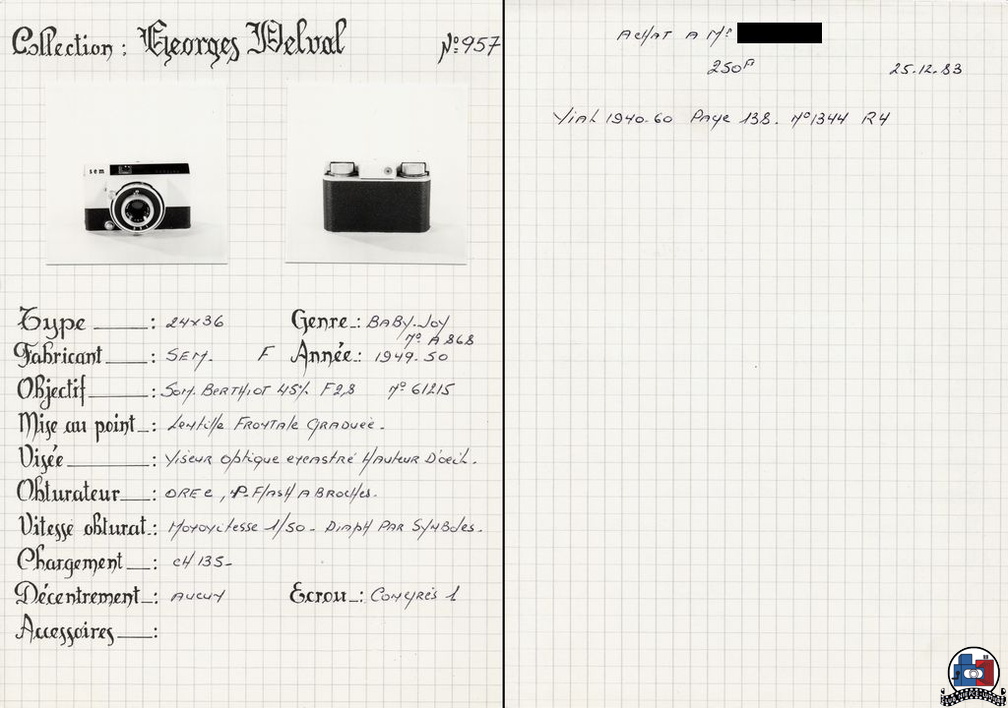 Collection : Georges Delval N° 957
sem
Type : 24x36 Genre : BABY-JOY
N° A868
Fabricant : SEM. F Année : 1949.50
Objectif : SOM. BERTHIOT 45% F2,8 N° 61215
Mise au point : Lentille FRONTALE GRADUÉE.
Visée : Viseur optique encastré Hauteur D'oeil.
Obturateur : OREC, P. Flash A Broches.
Vitesse obturat. : Monovitesse 1/50 - DIAPH PAR SYMBOLES.
Chargement : CH 135-
Décentrement : AUCUN Ecrou : CONGRÈS 1
Accessoires :
ACHAT A Mr
250F 25.12.83
Vial 1940.60 Page 138. N°1344 R4